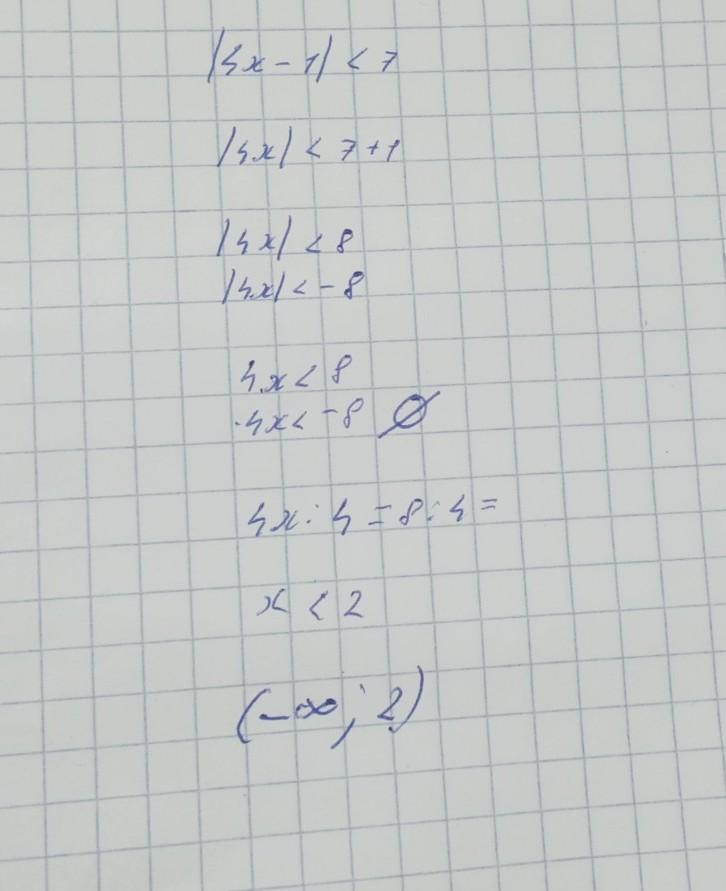 |4x - 1| < 7
|4x| < 7 + 1
|4x| < 8
|4x| < - 8
4x < 8
4x < - 8 ∅
4x : 4 = 8 : 4 =
x < 2
(-∞; 2)